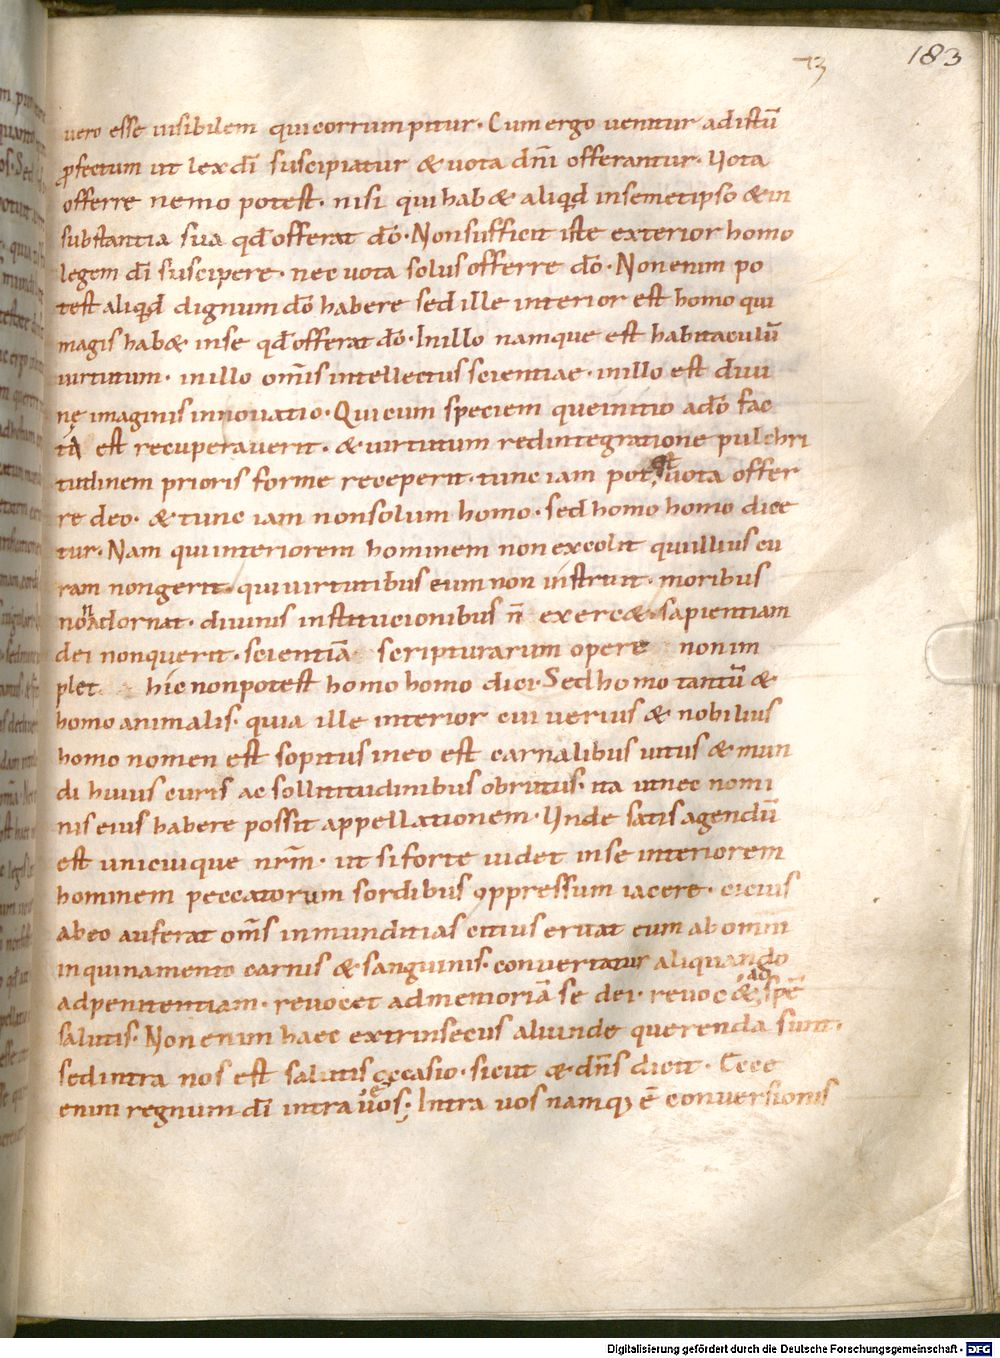 73
183
uero esse uisibilem quicorrumpitur. Cum ergo uenitur adistū
ꝓfectum ut lex dī suscipiatur & uota dn̄i offerantur. Uota
offerre nemo potest. nisi qui hab& aliqđ insemetipso & in
substantia sua qđ offerat dō. Nonsufficit iste exterior homo
legem dī suscipere. nec uota solus offerre dō. Non enim po
test aliqđ dignum dō habere sed ille interior est homo qui
magis hab& inse qđ offerat dō. Inillo namque est habitaculū
uirtutum. inillo om̄is intellectus scientiae. inillo est diui
nę imaginis innouatio. Qui cum speciem que initio adō fac
ta est recuperauerit. & uirtutum redintegratione pulchri
tudinem prioris forme receperit. tunc iam pot est uota offer
re deo. & tunc iam nonsolum homo. sed homo homo dice
tur. Nam qui interiorem hominem non excolit qui illius cu
ram nongerit. qui uirtutibus eum non instruit. moribus
non adornat. diuinis institucionibus n̄ exerc&. sapientiam
dei nonquerit. scientiā scripturarum opere nonim
plet hic nonpotest homo homo dici. Sed homo tantū &
homo animalis. quia ille interior cui uerius & nobilius
homo nomen est sopitus in eo est carnalibus uitiis & mun
di huius curis ac sollititudinibus obrutus. ita utnec nomi
nis eius habere possit appellationem. Unde satis agendū
est unicuique nr̄m. ut siforte uidet inse interiorem
hominem peccatorum sordibus ꝯppressum iacere. cicius
abeo auferat om̄s inmunditias citius eruat eum abomni
inquinamento carnis & sanguinis. conuertatur aliquando
adpenitentiam. reuocet admemoriā se dei. reuoc& ad spē
salutis. Non enim haec extrinsecus aliunde querenda sunt.
sed intra nos est salutis occasio. sicut & dn̄s dicit. Ecce
enim regnum dī intra uos; Intra uos namqꝫ ē conuersionis
Digitalisierung gefördert durch die Deutsche Forschungsgemeinschaft - DFG